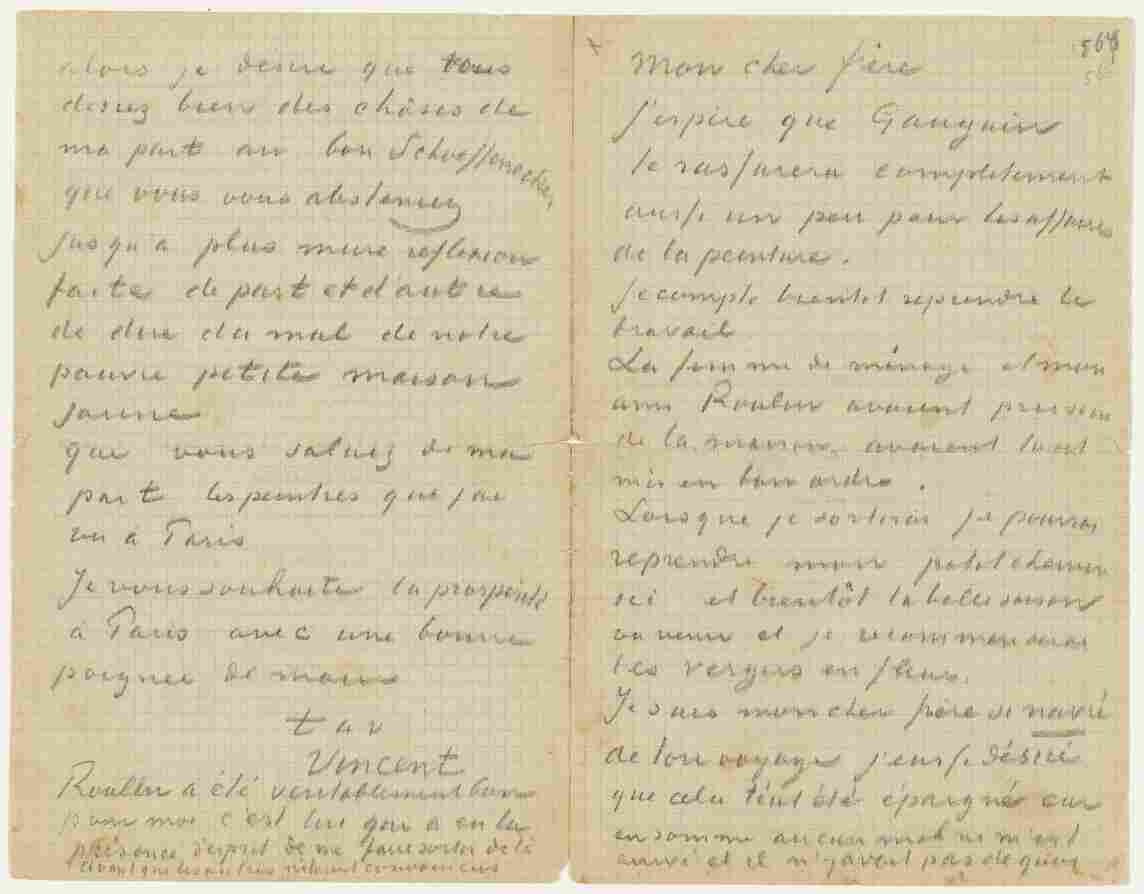 alors je désire que vous
disiez bien des chôses de
ma part au bon Schuffenecker
que vous vous absteniez
jusqu'à plus mure reflexion
faite de part et d'autre
de dire du mal de notre
pauvre petite maison
jaune
que vous saluez de ma
part les peintres que j'ai
vu à Paris
Je vous souhaite la prospérité
à Paris avec une bonne
poignee de main
t. à v
Vincent
Roulin a été veritablement bon
pour moi c'est lui qui a eu la
présence d'esprit de me faire sortir de là
avant que les autres n'étaient convaincus
564
Mon cher frère
J'espère que Gauguin
te rassurera completement
aussi un peu pour les affaires
de la peinture.
Je compte bientot reprendre le
travail.
La femme de ménage et mon
ami Roulin avaient pris soin
de la maison, avaient tout
mis en bon ordre.
Lorsque je sortirai je pourrai
reprendre mon petit chemin
ici et bientôt la belle saison
va venir et je recommencerai
les vergers en fleur.
Je suis mon cher frère si navré
de ton voyage j'eusse désiré
que cela t'eut été épargné car
en somme aucun mal ne m'est
arrivé et il n'y avait pas de quoi